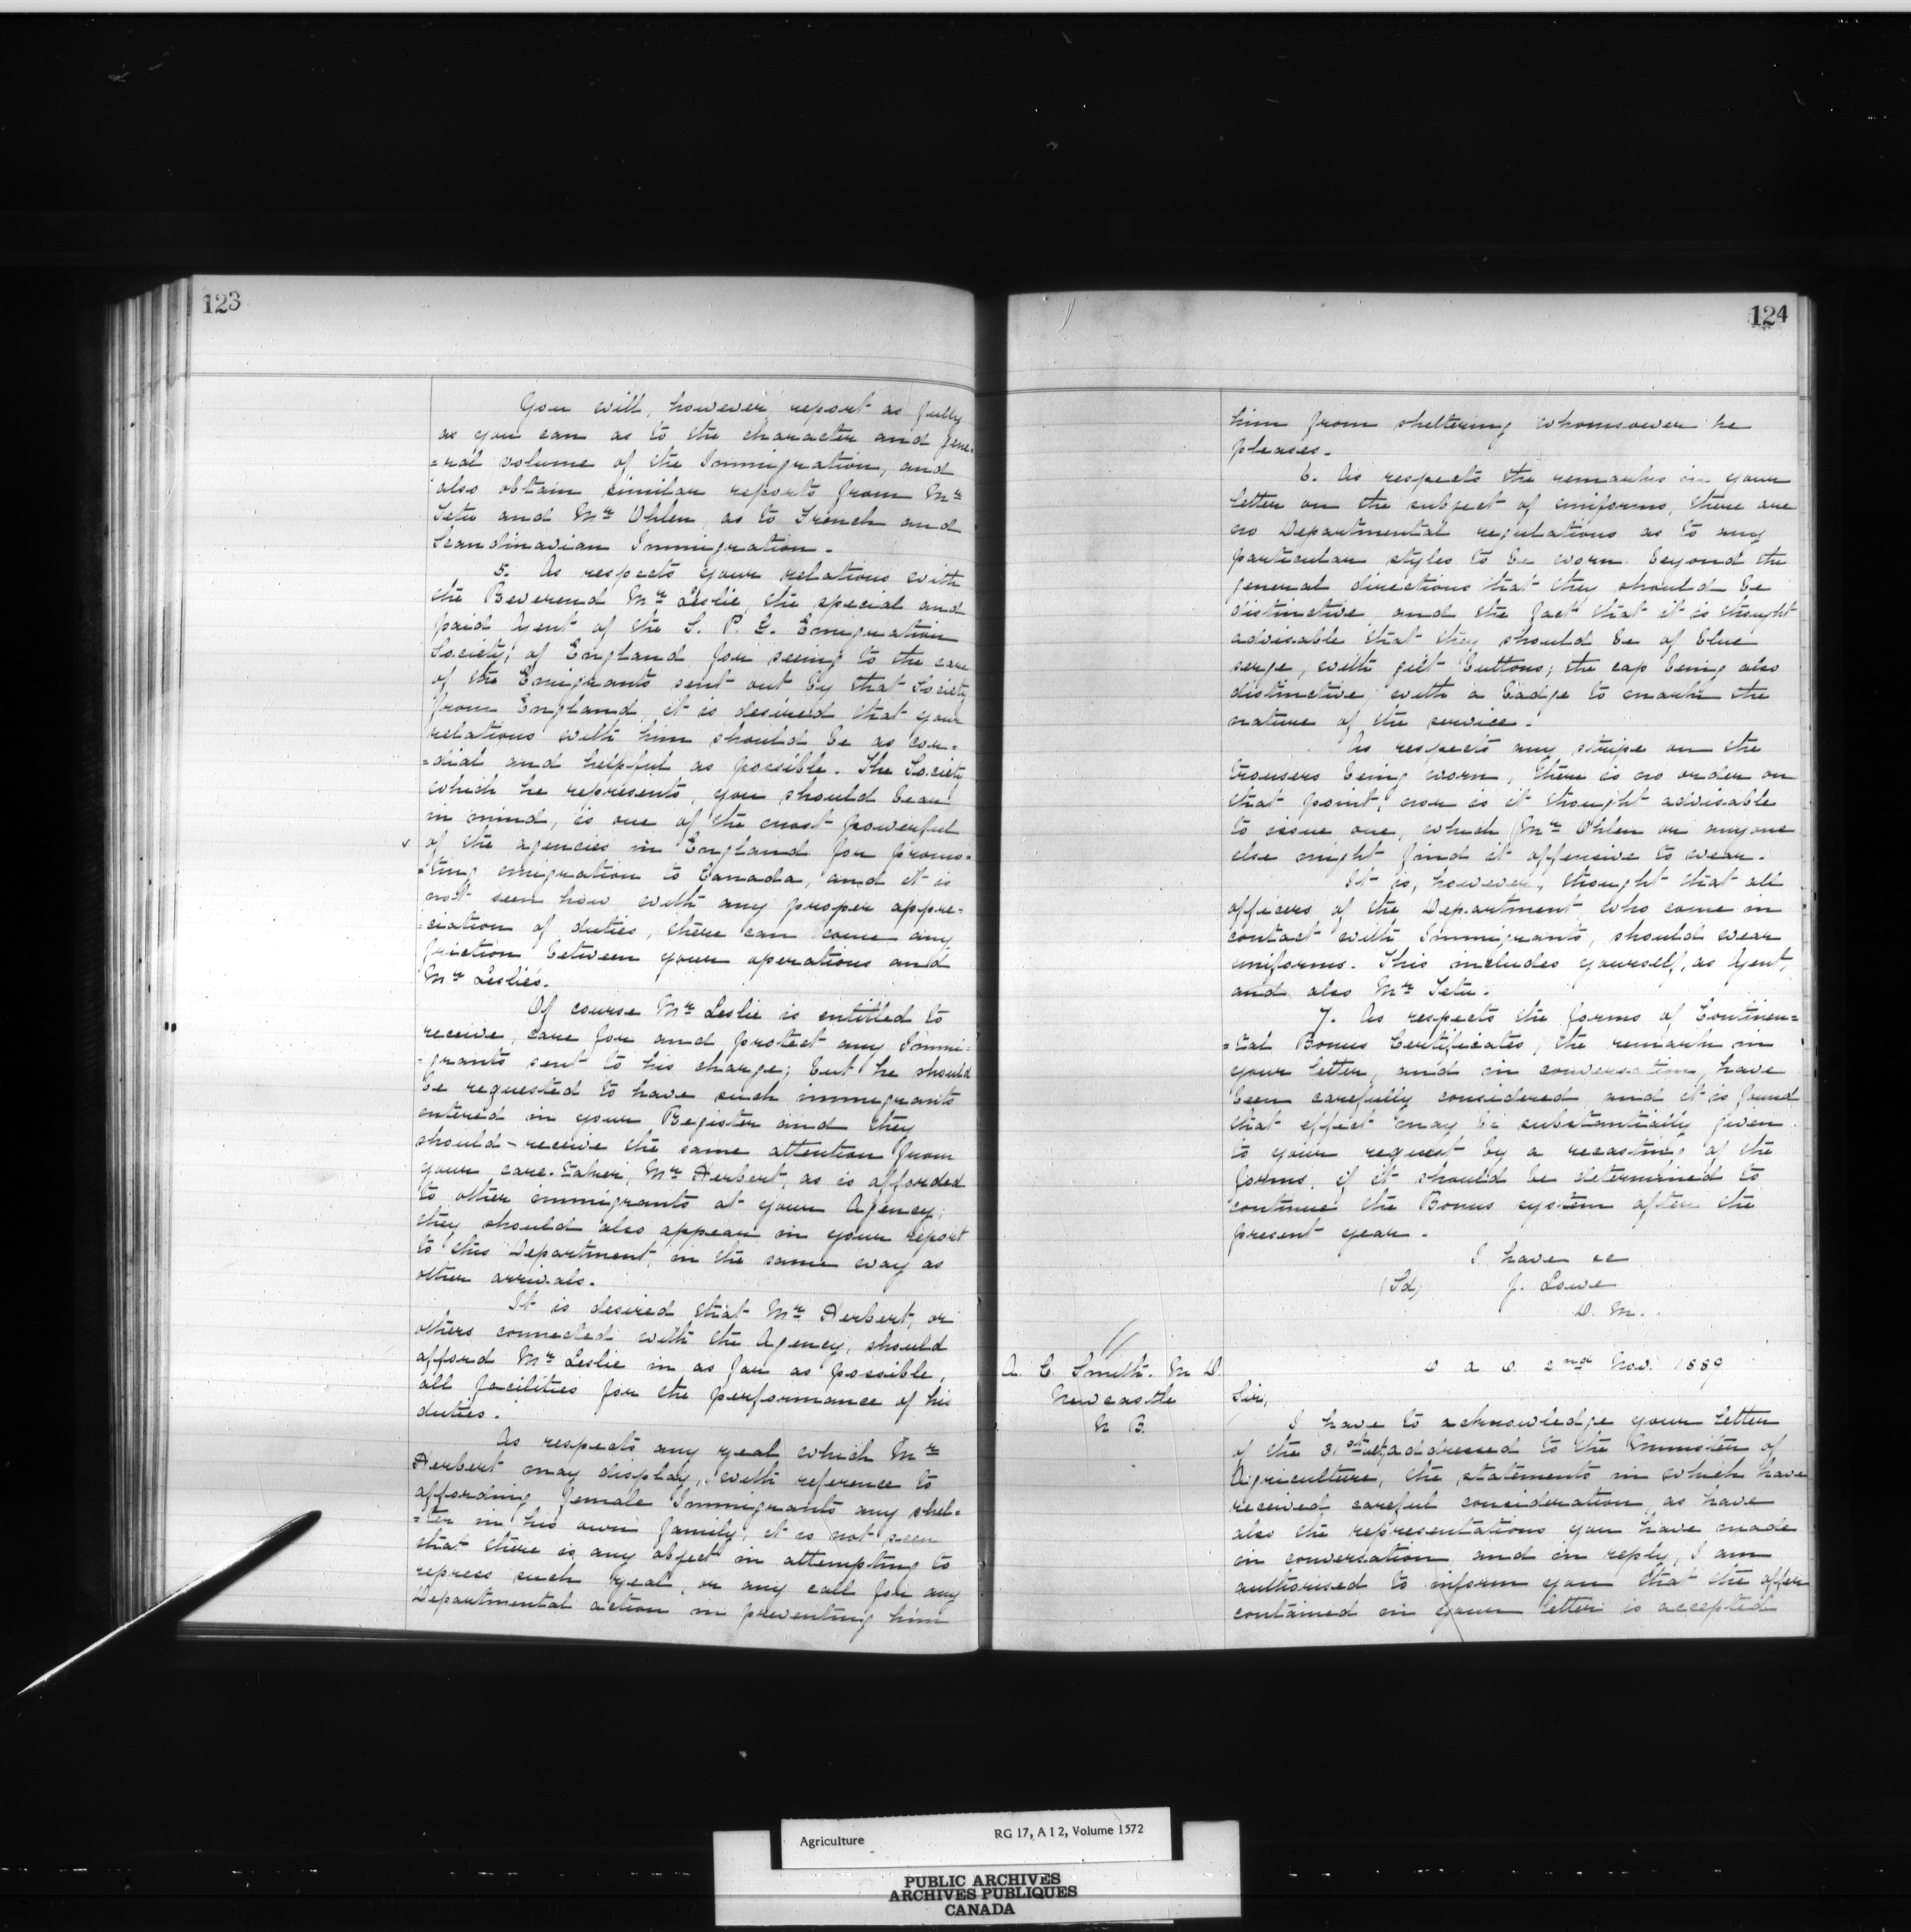 123
You will, however, report as fully
as you can as to the character and gene-
=ral volume of the Immigration, and
also obtain similar reports from Mr
Tetu and Mr Ohlen, as to French and
Scandinavian Immigration.
5. As respects your relations with
the Reverend Mr Leslie, the special and
paid Agent of the S. P. G. Emigration
Society, of England for seeing to the care
of the Emigrants sent out by that Society
from England, it is desired that your
relations with him should be as cor-
=dial and helpful as possible. The Society
which he represents, you should bear
in mind, is one of the most powerful
of the agencies in England for promo-
=ting emigration to Canada, and it is
not seen how with any proper appre-
=ciation of duties, there can come any
friction between your operations and
Mr Leslie's.
Of course Mr Leslie is entitled to
receive, care for and protect any Immi-
=grants sent to his charge; but he should
be requested to have such immigrants
entered in your Register and they
should receive the same attention from
your care-taker, Mr Herbert, as is afforded
to other immigrants at your Agency;
they should also appear in your report
to this Department, in the same way as
other arrivals.
It is desired that Mr Herbert, or
others connected with the Agency, should
afford Mr Leslie in as far as possible,
all facilities for the performance of his
duties.
As respects any zeal which Mr
Herbert may display, with reference to
affording female Immigrants any shel-
=ter in his own family, it is not seen
that there is any object in attempting to
repress such zeal, or any call for any
Departmental action in preventing him
124
him from sheltering whomsoever he
pleases.
6. As respects the remarks in your
letter on the subject of uniforms, there are
no Departmental regulations as to any
particular styles to be worn beyond the
general directions that they should be
distinctive and the fact that it is thought
advisable that they should be of blue
serge, with gilt buttons; the cap being also
distinctive with a badge to mark the
nature of the service.
As respects any stripe on the
trousers being worn, there is no order on
that point, nor is it thought advisable
to issue one, which Mr Ohlen or anyone
else might find it offensive to wear.
It is, however, thought that all
officers of the Department who come in
contact with Immigrants, should wear
uniforms. This includes yourself, as Agent,
and also Mr Tetu.
7. As respects the forms of Continen=
=tal Bonus Certificates, the remark in
your letter, and in conversation, have
been carefully considered and it is found
that effect may be substantially given
to your request by a recasting of the
forms, if it should be determined to
continue the Bonus system after the
present year.
I have &c
(Sd) J. Lowe
D. M.
A. C. Smith. M D.
Newcastle
N B.
D a O. 2nd Nov. 1889
Sir,
I have to acknowledge your letter
of the 31st ult, addressed to the Minister of
Agriculture, the statements in which have
received careful consideration, as have
also the representations you have made
in conversation and in reply, I am
authorised to inform you that the offer
contained in your letter is accepted
Agriculture RG 17, A I 2, Volume 1572
PUBLIC ARCHIVES
ARCHIVES PUBLIQUES
CANADA